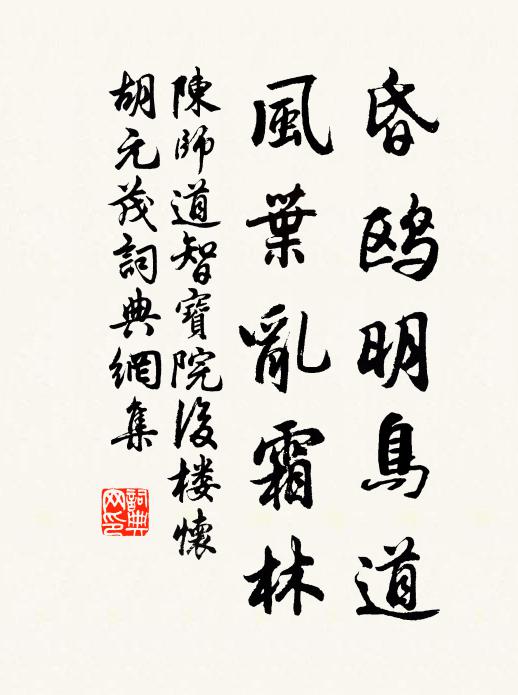 昏鴟明鳥道
風葉亂霜林
陳師道智寶院後樓懷
胡元茂詞典網集
詞典网印